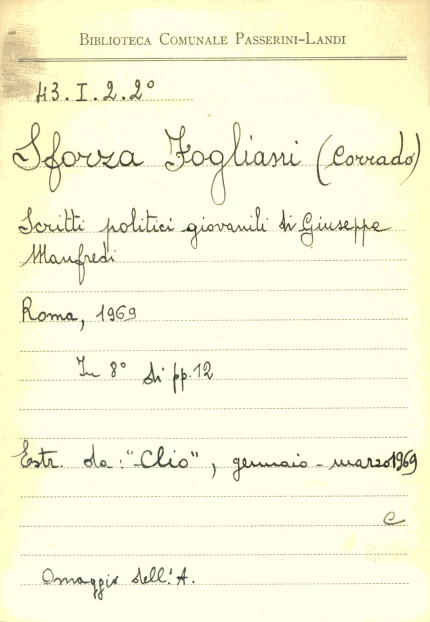 BIBLIOTECA COMUNALE PASSERINI-LANDI
43. I. 2. 2°
Sforza Fogliani (Corrado)
Scritti politici giovanili di Giuseppe
Manfredi
Roma, 1969
In 8° di pp. 12
Estr. da: "Clio", gennaio-marzo 1969
C
Omaggio dell'A.